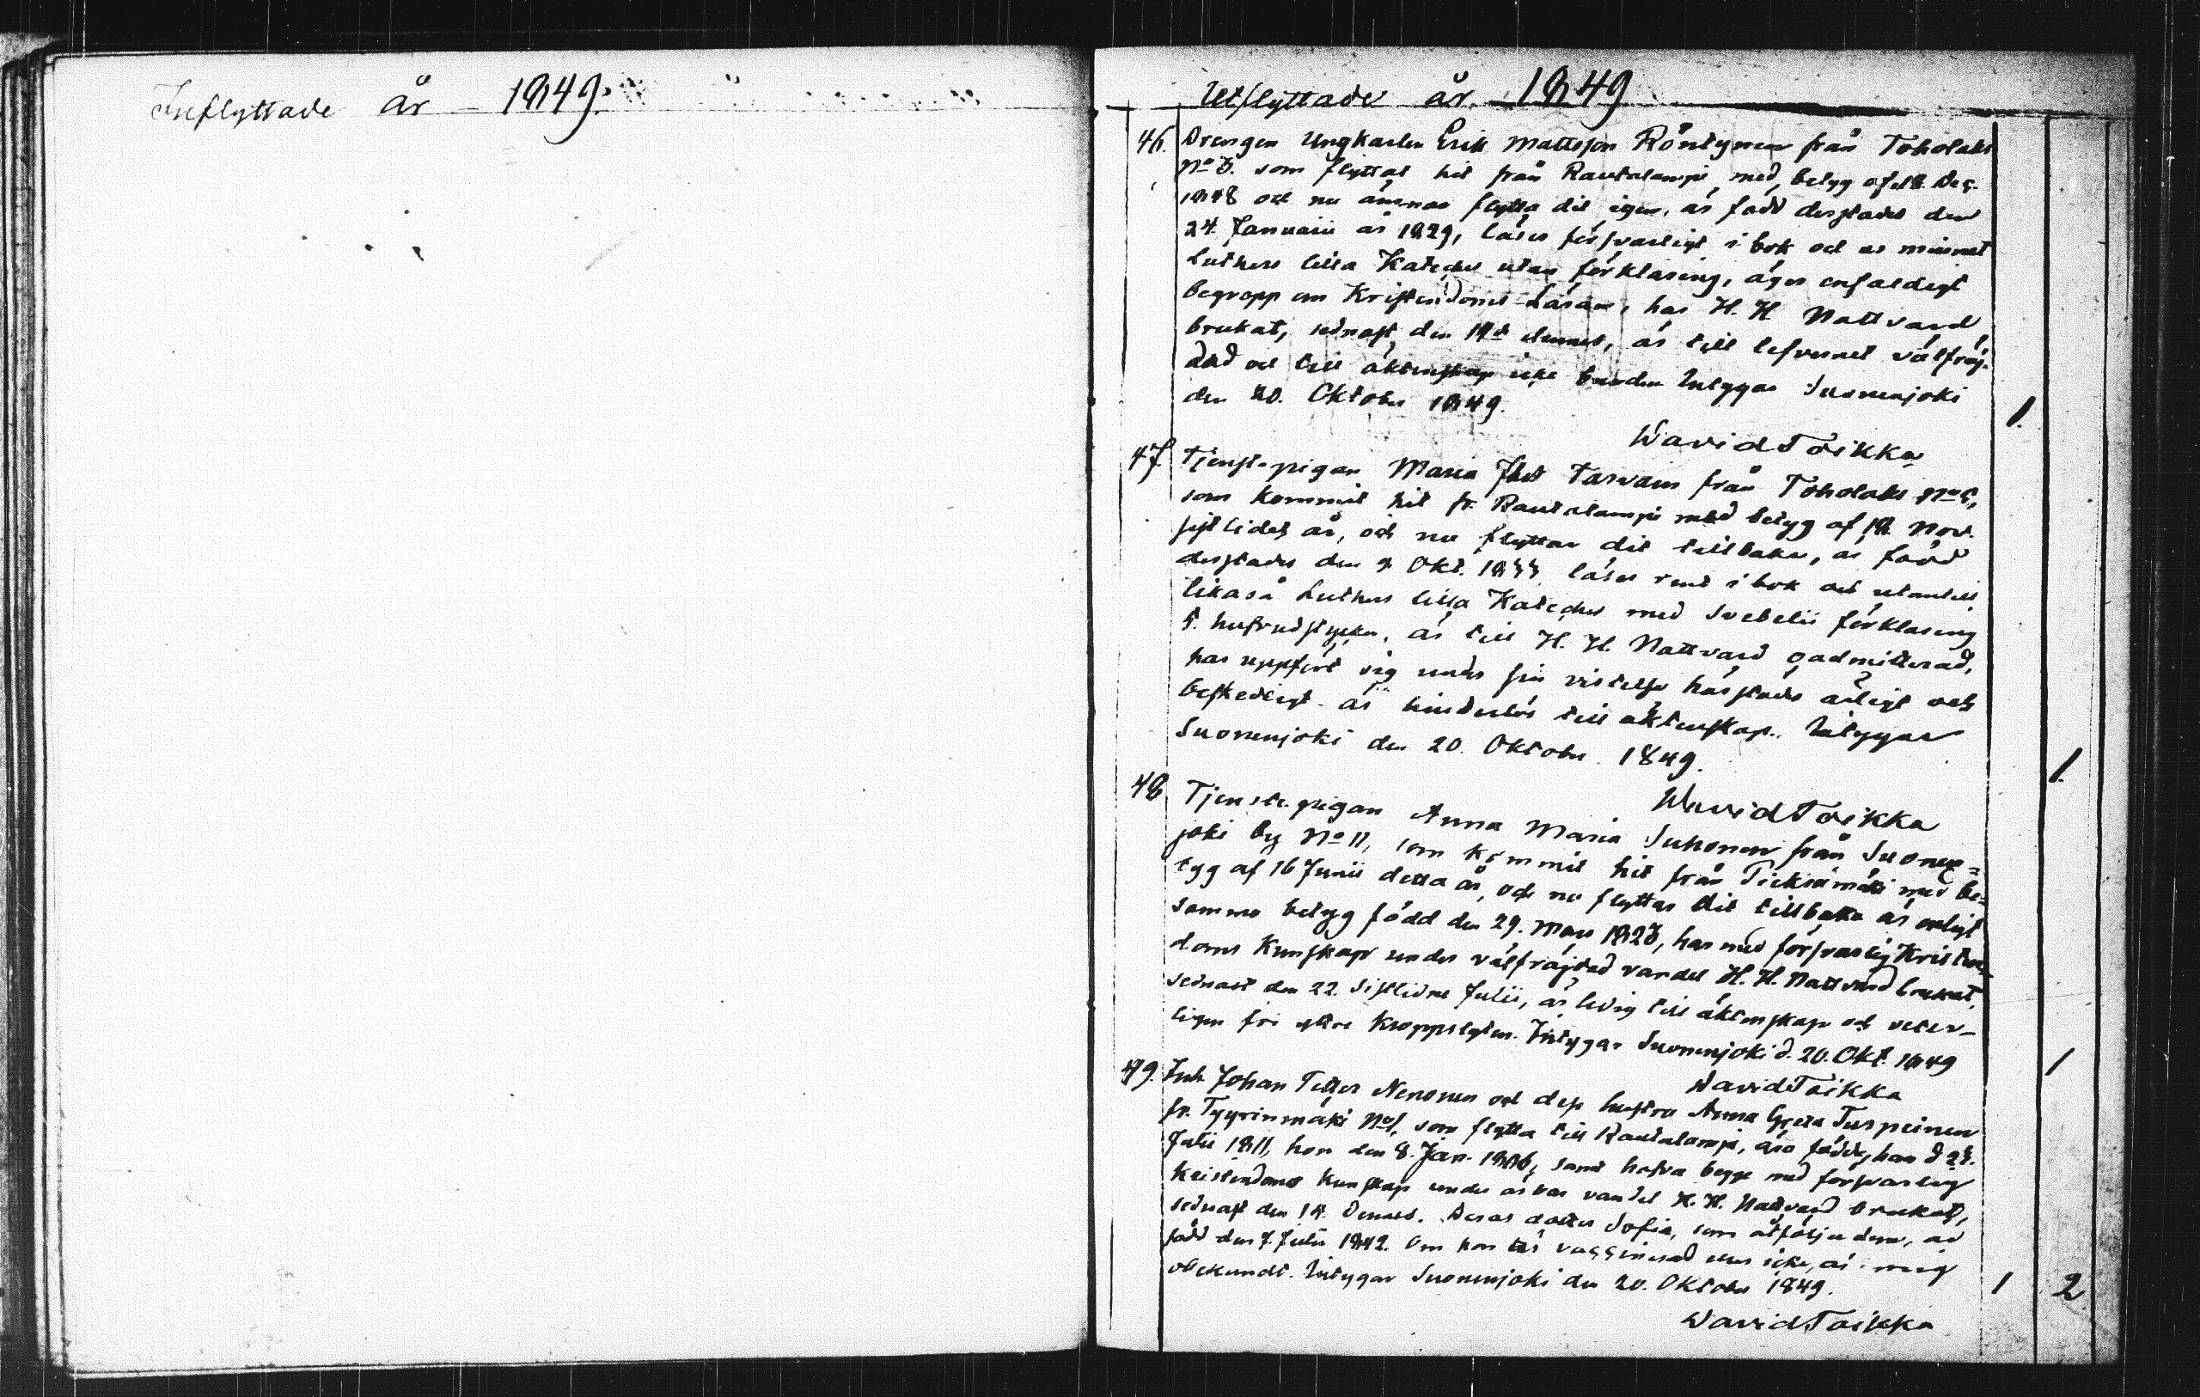 Inflyttade år 1849.
Utflyttade år 1849
46. Drengen Ungkarlen Erik Mattsson Röntynen från Toholaks
No 3. som flyttat hit från Rautalampi med betyg af d. Dec.
1848 och nu ämnar flytta dit igen, är född derstädes den
24. Januarii år 1829, läser försvarligt i bok och ur minnet
Luthers lilla Kateches utan förklaring, äger enfaldigt
begrepp om Kristendoms Läran, har H. H. Nattvard
brukat, sednast den 14de dennes, är till lefvernet välfräj-
dad och till äktenskap icke bunden Intygar Suonenjoki
den 20. Oktober 1849.
1.
David Toikka
47. Tjenste-pigan Maria Tarvain från Toholaks No 5,
som kommit hit fr. Rautalampi med betyg af 18. Nov.
sistlidet år, och nu flyttar dit tillbaka, är född
derstädes den 9 Okt. 1833 läser rent i bok och utantill
likaså Luthers lilla Kateches med Svebelii förklaring
5. hufvudstycken, är till H. H. Nattvard oadmitterad,
har uppfört sig under sin vistelse härstädes ärligt och
beskedligt är hinderlös till äktenskap. Intygar
Suonenjoki den 20. Oktober 1849.
1.
David Toikka
48. Tjenste-pigan Anna Maria Suhonen från Suonen=
joki by No 11, som kommit hit från Pieksämäki med be-
tyg af 16 Junii detta år, och nu flyttar dit tillbaka är enligt
samma betyg född den 29. Mars 1823, har med försvarlig Kristen-
doms Kunskap under välfräjdad vandel H. H. Nattvard brukat,
sednast den 22. sistlidne Julii, är ledig till äktenskap och veter-
ligen fri yttre kroppslyten. Intygar Suonenjoki d. 20. Okt. 1849
1
David Toikka
49. Inh. Johan Petter Nenonen och dess hustru Anna Greta Turpeinen
fr. Tyyrinmäki No 1, som flytta till Rautalampi, äro födde, han d 23.
Julii 1811, hon den 8. Jan. 1806, samt hafva begge med försvarlig
Kristendoms Kunskap under ärbar vandel H. H. Nattvard brukat,
sednast den 14. Dennes. Deras dotter Sofia, som åtfölja dem, är
född den 7. Julii 1842. Om hon är vaccinerad eller icke, är mig
obekundt. Intygar Suonenjoki den 20. Oktober 1849.
1 2
David Toikka